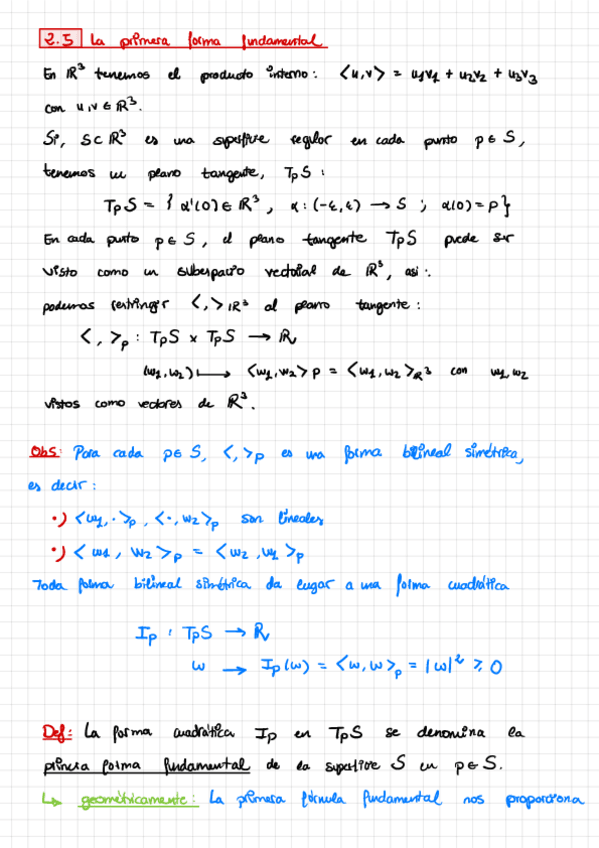 2.5 La primera forma fundamental
En ℝ³ tenemos el producto interno: <u,v> = u₁v₁ + u₂v₂ + u₃v₃
con u,v ∈ ℝ³.
Si, S⊂ℝ³ es una superficie regular en cada punto p∈S,
tenemos un plano tangente, TpS:
TpS = { α'(0)∈ℝ³, α:(-ε,ε) → S ; α(0)=p}
En cada punto p∈S, el plano tangente TpS puede ser
visto como un subespacio vectorial de ℝ³, asi:
podemos restringir <,>ℝ³ al plano tangente:
<,>p : TpS × TpS → ℝ
(w₁,w₂) ↦ <w₁,w₂>p = <w₁,w₂>ℝ³ con w₁,w₂
vistos como vectores de ℝ³.
Obs: Para cada p∈S, <,>p es una forma bilineal simétrica,
es decir:
•) <w₁,·>p, <·,w₂>p son lineales
•) <w₁, w₂>p = <w₂,w₁>p
Toda forma bilineal simétrica da lugar a una forma cuadrática
Ip : TpS → ℝ
w → Ip(w) = <w,w>p = |w|² ≥ 0
Def: La forma cuadrática Ip en TpS se denomina la
primera forma fundamental de la superficie S en p∈S.
↳ geométricamente: La primera fórmula fundamental nos proporciona